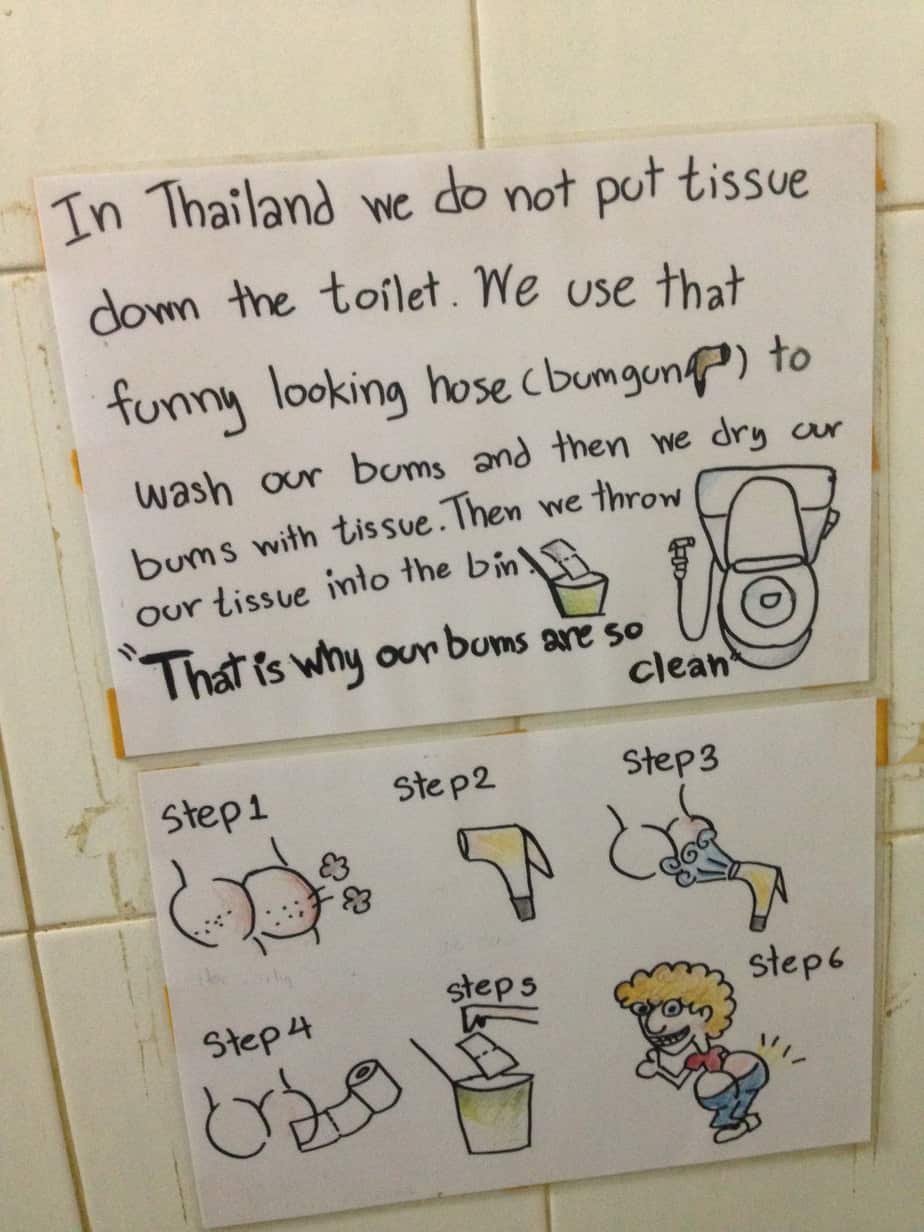 In Thailand we do not put tissue
down the toilet. We use that
funny looking hose (bumgun) to
wash our bums and then we dry our
bums with tissue. Then we throw
our tissue into the bin.
"That is why our bums are so
clean"
Step1
Step2
Step3
Step4
Step5
Step6